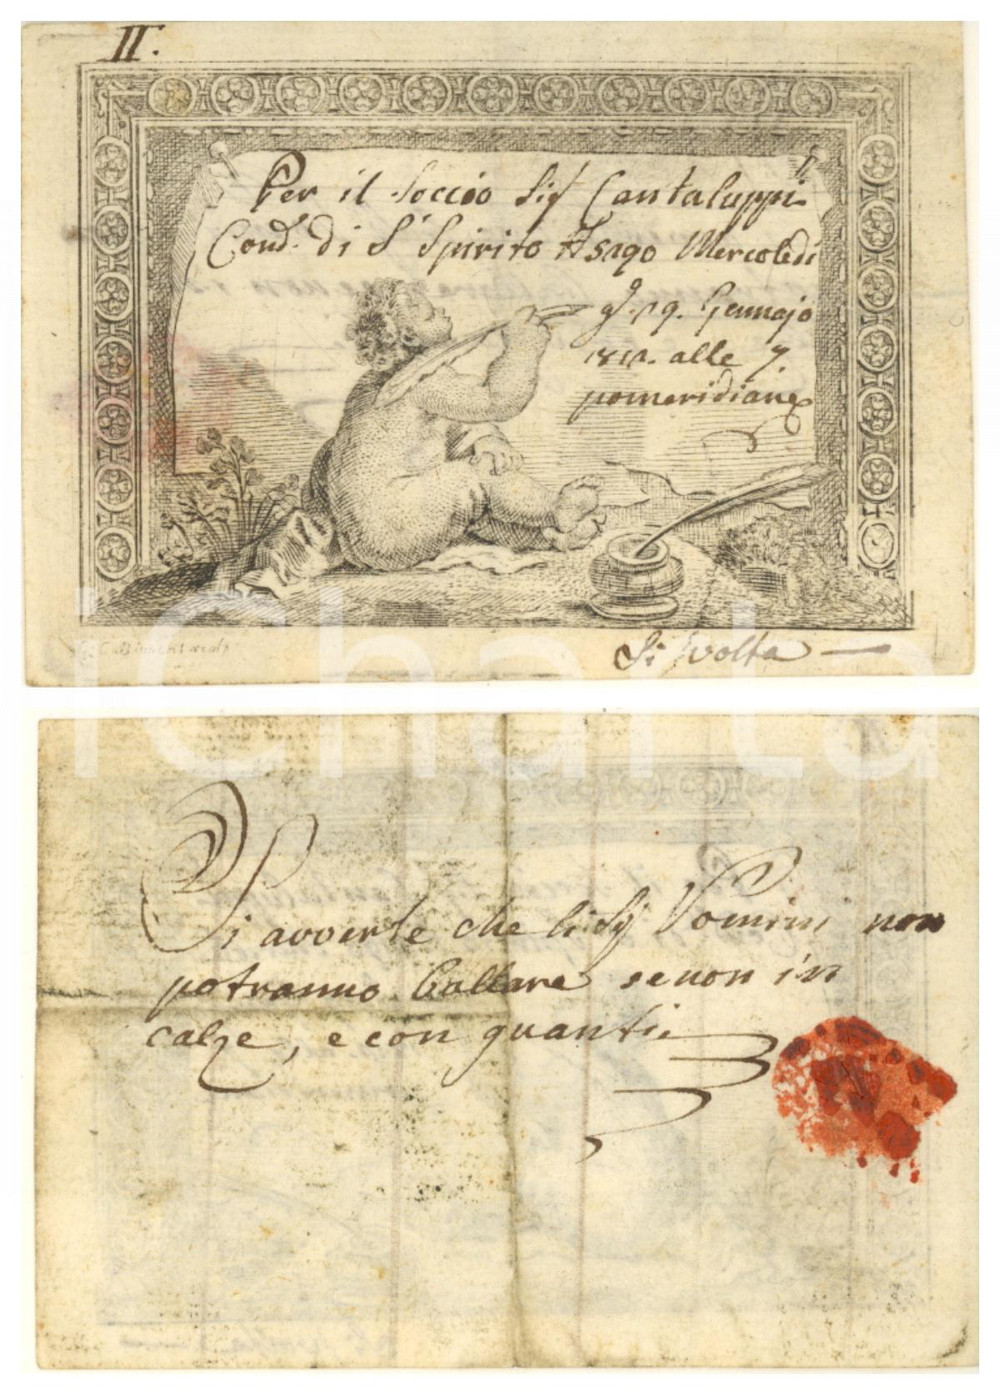 II.
Per il Soccio Sig Cantaluppi
Cond. di S. Spirito Asago Mercoledi
g. 19. Gennajo
alle 7.
pomeridiane
Si volta
Si avverte che li Sig Uomini non
potranno Ballare se non in
calze, e con guanti
iCharta